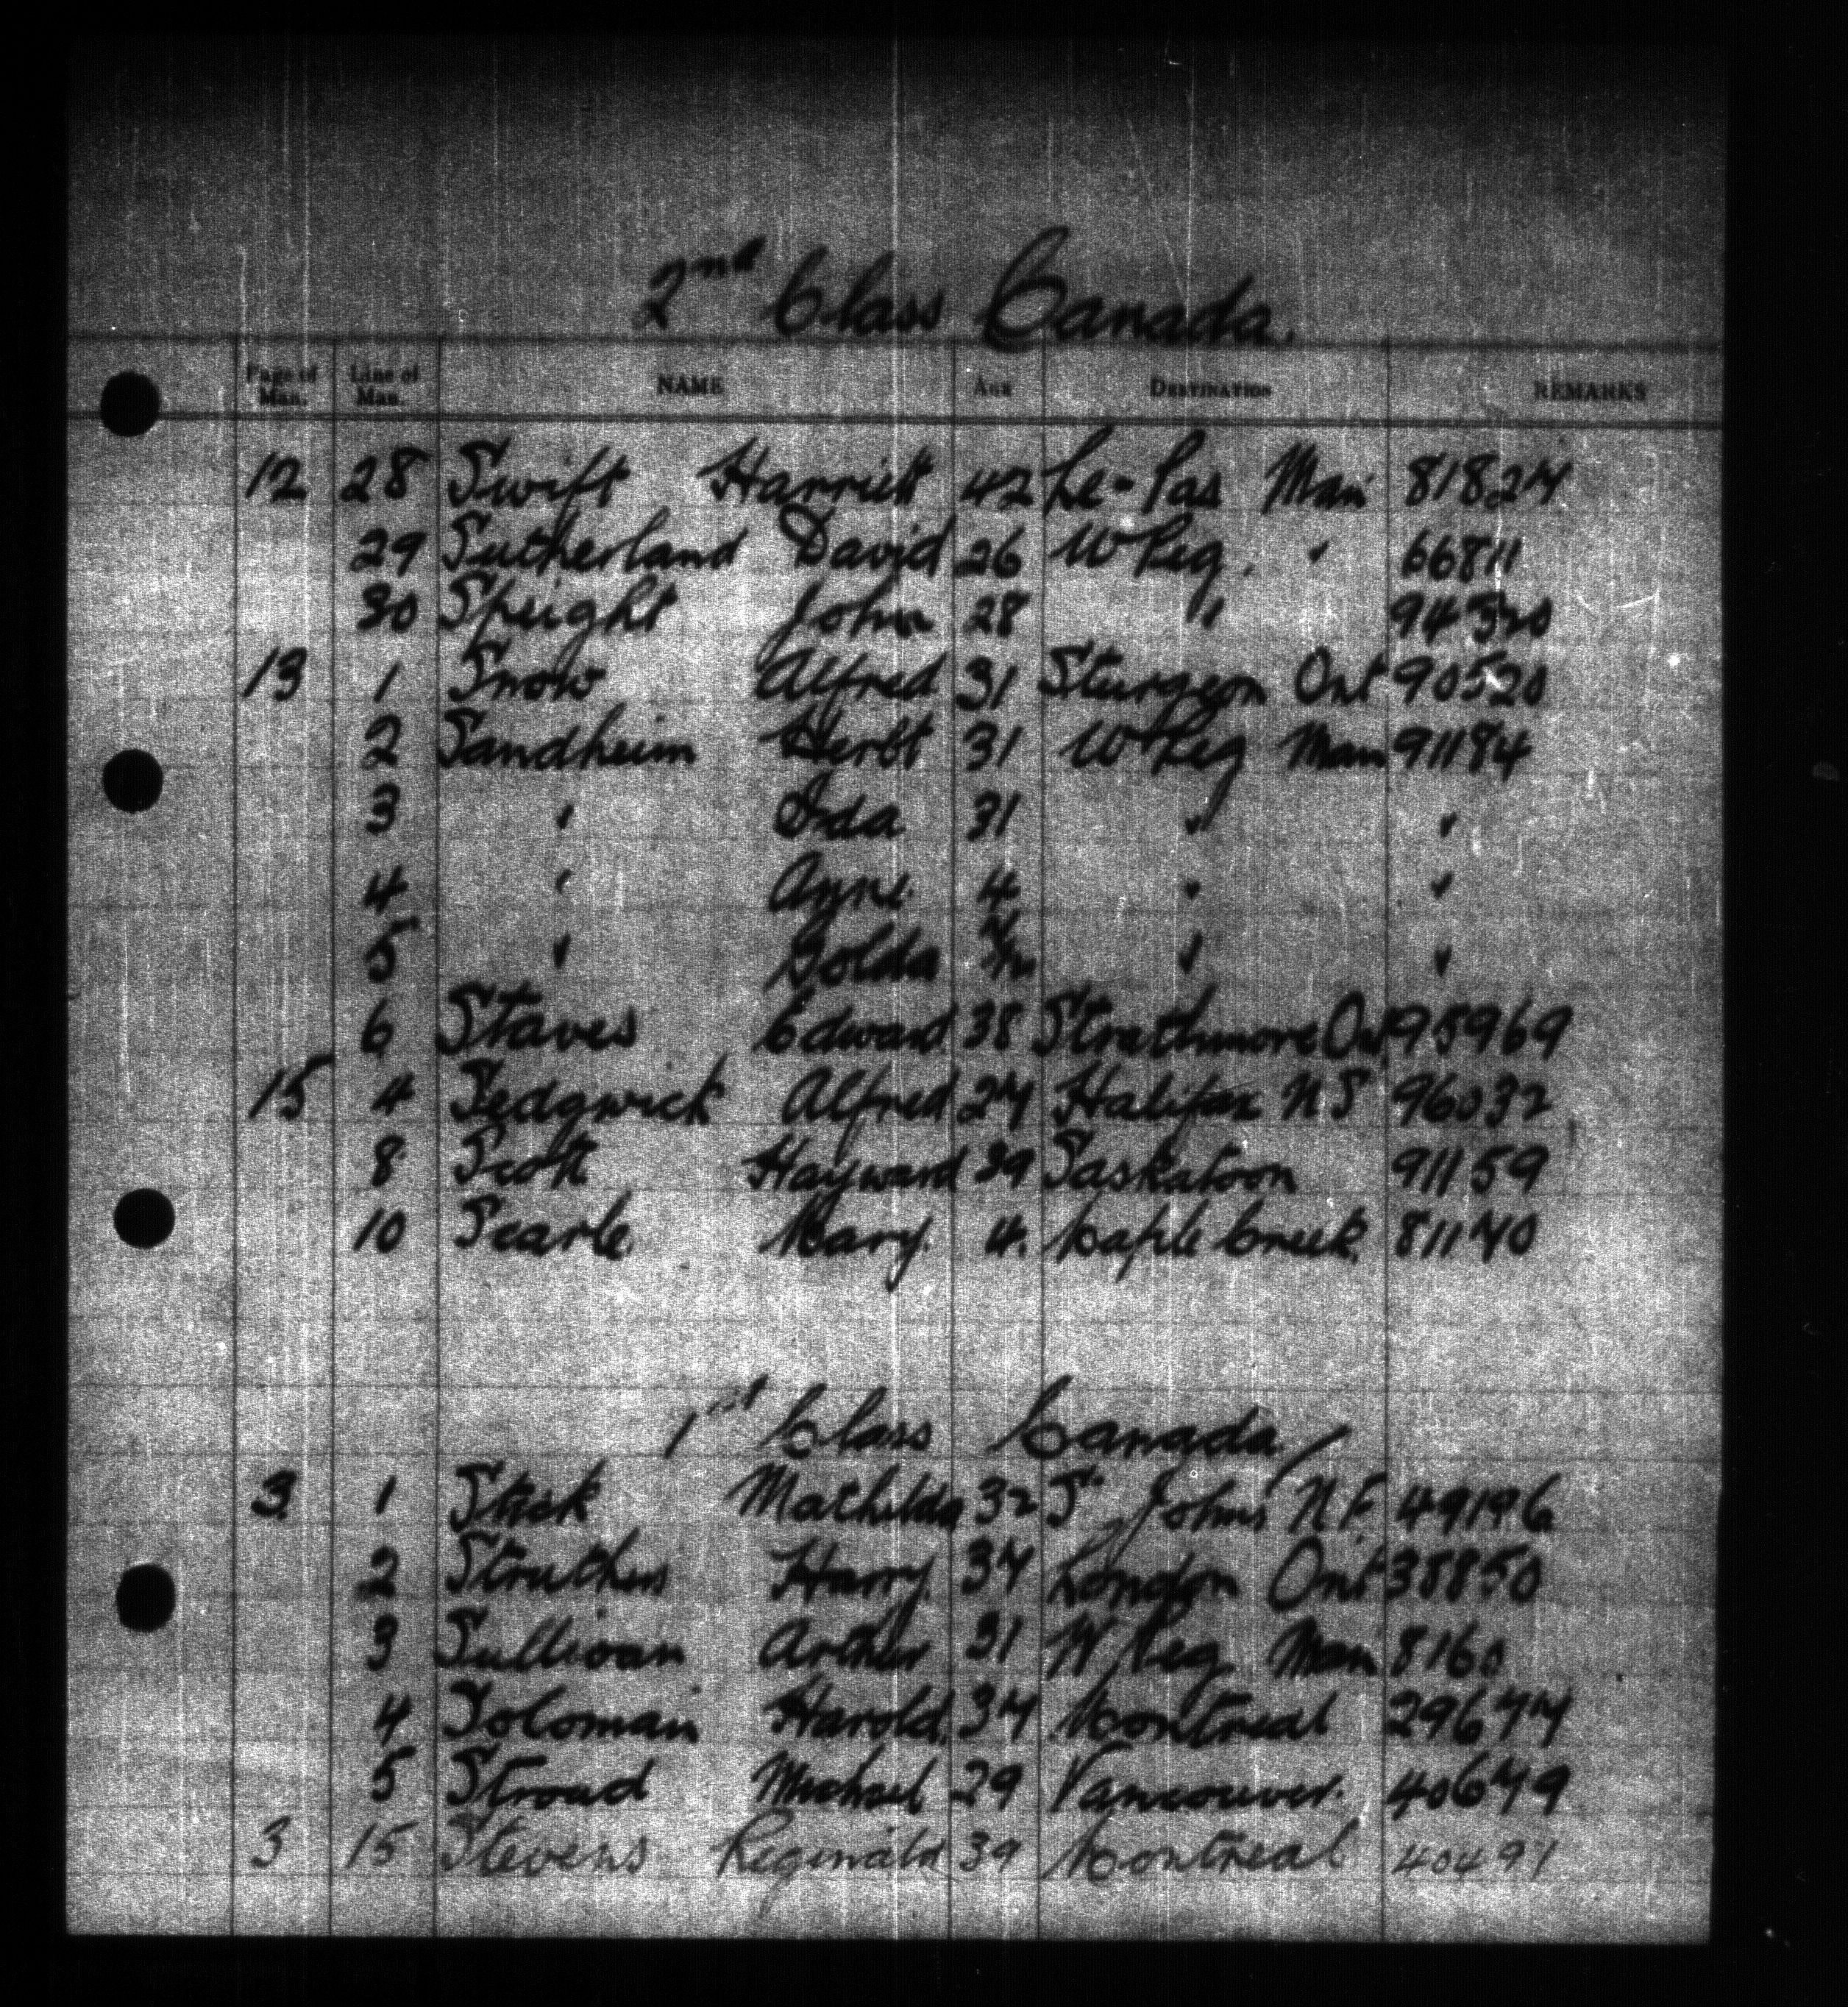 2nd Class Canada.
Page of Man. Line of Man. NAME AGE DESTINATION REMARKS
12 28 Swift Harriett 42 Le-Pas Man 81827
29 Sutherland David 26 WPeg. " 66811
30 Speight John 28 " 94320
13 1 Snow Alfred 31 Sturgeon Ont 90520
2 Sandheim Herbt 31 WPeg Man 91184
3 " Ida 31 " "
4 " Anne 4 " "
5 " Golda " "
6 Staves Edward 38 Strathmore Ont 95969
15 4 Sedgwick Alfred 27 Halifax N S 96032
8 Scott Hayward 39 Saskatoon 91159
10 Searle Mary. 4. Maple Creek. 81170
1st Class Canada
3 1 Stick Mathilda 32 St Johns N F. 49196
2 Struthers Harry 37 London Ont 38850
3 Sullivan Arthur 31 W Peg Man 8160
4 Soloman Harold 37 Montreal 29677
5 Stroud Michael 29 Vancouver. 40679
3 15 Stevens Reginald 39 Montreal 40497